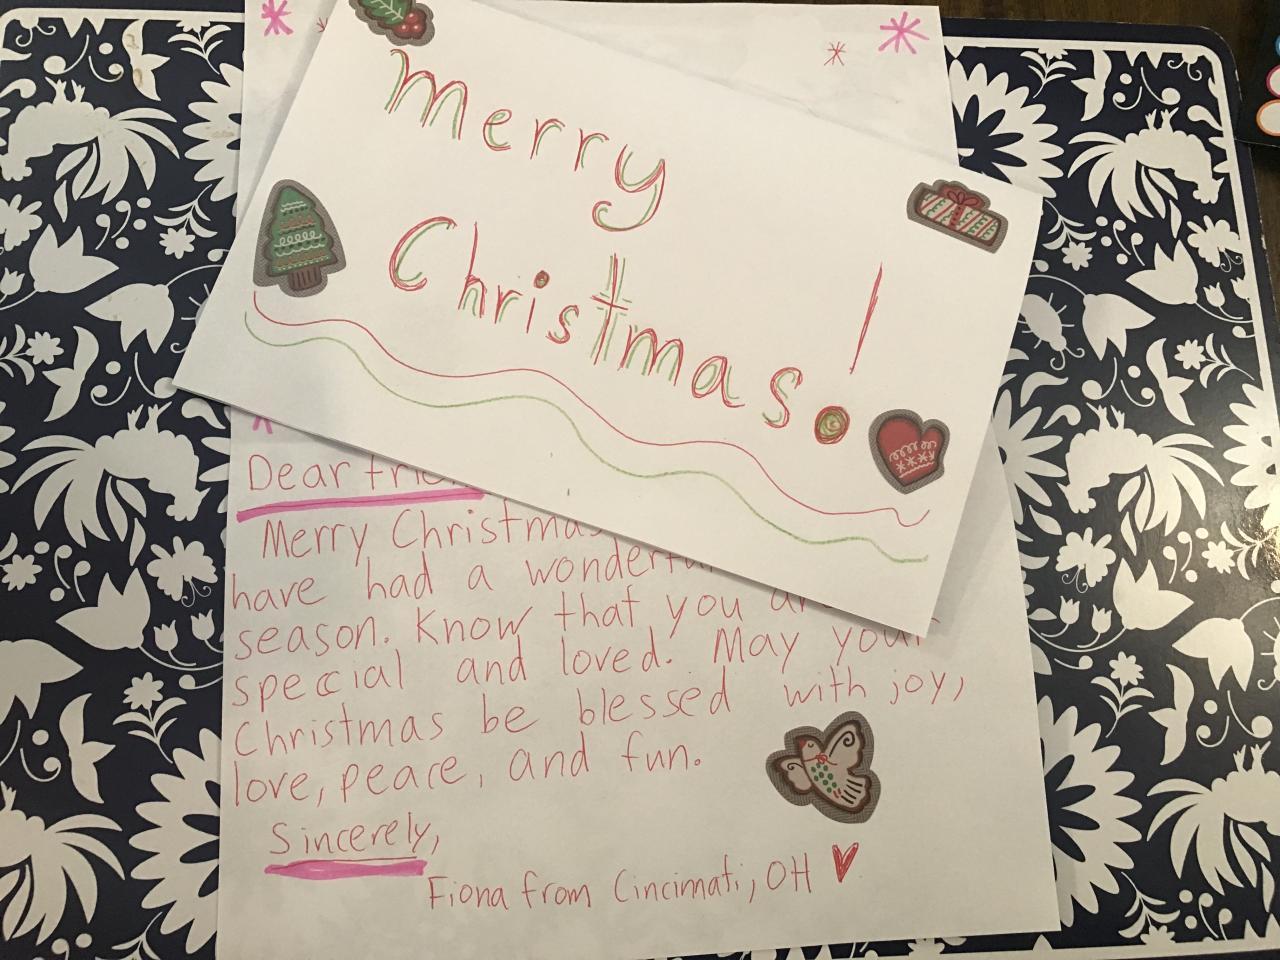 Merry
Christmas!
Dear frie
Merry Christmas
have had a wonderful
season. Know that you
special and loved. May your
Christmas be blessed with joy,
love, peace, and fun.
Sincerely,
Fiona from Cincinnati, OH